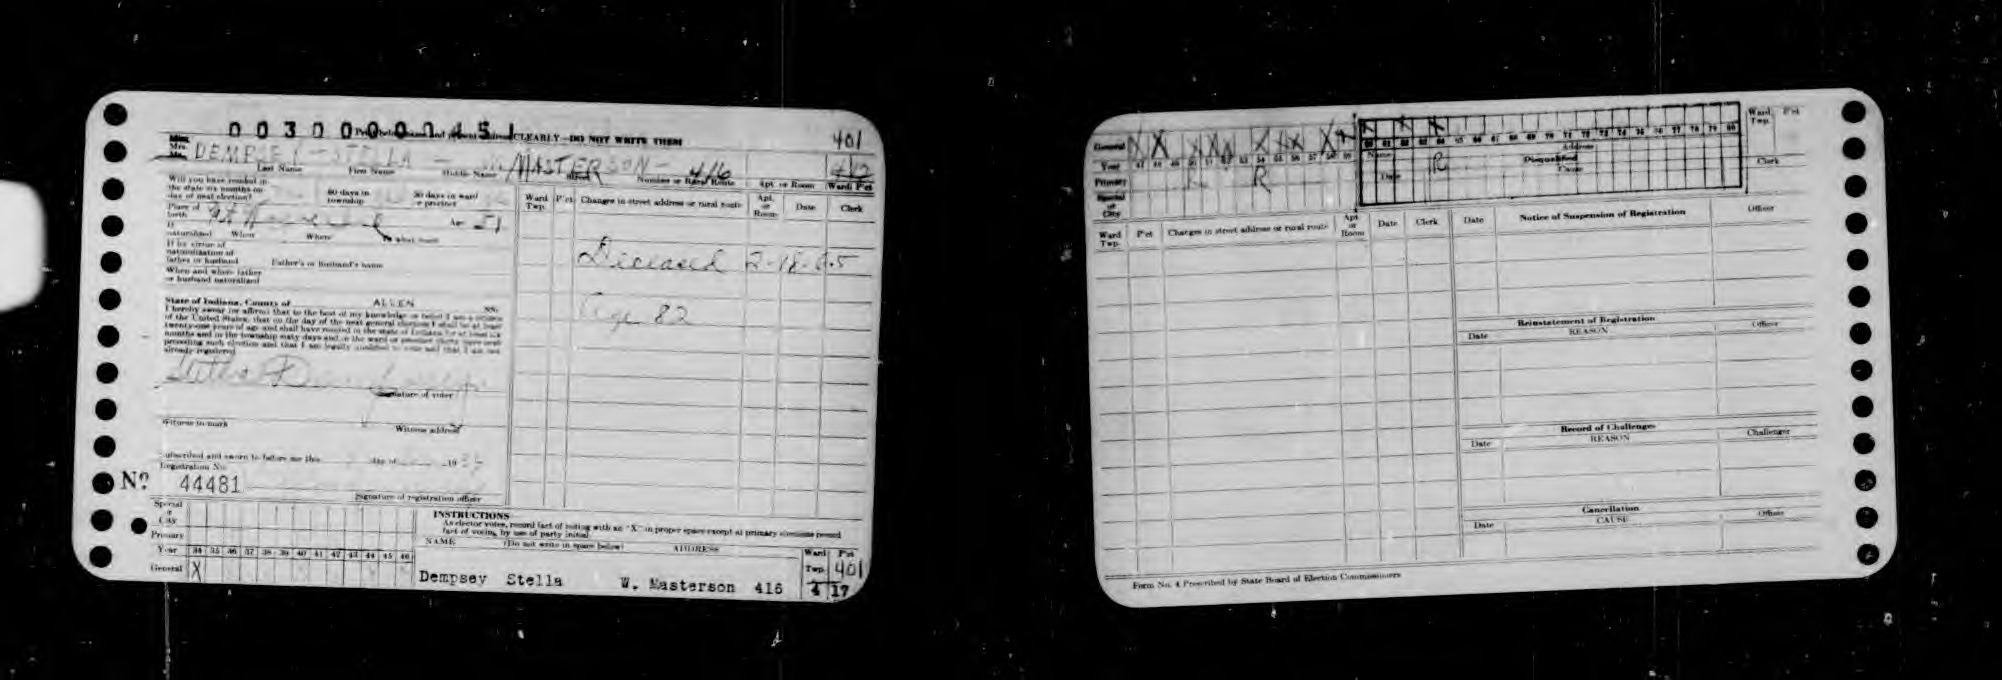 Print below name and present address CLEARLY—DO NOT WRITE THEM
401
Miss
Mrs.
Mr.
DEMPSEY - STELLA - W. MASTERSON - 416
412
Last Name First Name Middle Name Street Number or Rural Route Apt. or Room Ward P'ct
Will you have resided in
the state six months on
day of next election?
60 days in
township
30 days in ward
or precinct
Place of
birth
Age 51
If
naturalized When Where To what court
If by virtue of
naturalization of
father or husband Father's or husband's name
When and where father
or husband naturalized
State of Indiana, County of ALLEN SS:
I hereby swear (or affirm) that to the best of my knowledge or belief I am a citizen
of the United States, that on the day of the next general election I shall be at least
twenty-one years of age and shall have resided in the state of Indiana for at least six
months and in the township sixty days and in the ward or precinct thirty days next
preceding such election and that I am legally qualified to vote and that I am not
already registered
Stella Dempsey
Signature of voter
Witness to mark Witness address
Subscribed and sworn to before me this day of 19
Registration No.
Nº 44481
Signature of registration officer
Ward
Twp. P'ct Changes in street address or rural route Apt.
or
Room Date Clerk
Deceased 2-18-65
Age 82
Special
or
City
Primary
Year 34 35 36 37 38 39 40 41 42 43 44 45 46
General X
INSTRUCTIONS
As elector votes, record fact of voting with an "X" in proper space except at primary elections record
fact of voting by use of party initial
NAME (Do not write in space below) ADDRESS
Ward
Twp. P'ct
401
Dempsey Stella W. Masterson 416 4 17
General X X X X X X X X X X X X X
Year 47 48 49 50 51 52 53 54 55 56 57 58 59 60 61 62 63 64 65 66 67 68 69 70 71 72 73 74 75 76 77 78 79 80
Primary R R
Special
or
City
Name Address
Date Disqualified
Cause
Ward
Twp. P'ct
Clerk
Ward
Twp. P'ct Changes in street address or rural route Apt
or
Room Date Clerk
Date Notice of Suspension of Registration Officer
Reinstatement of Registration
Date REASON Officer
Record of Challenges
Date REASON Challenger
Cancellation
Date CAUSE Officer
Form No. 4 Prescribed by State Board of Election Commissioners